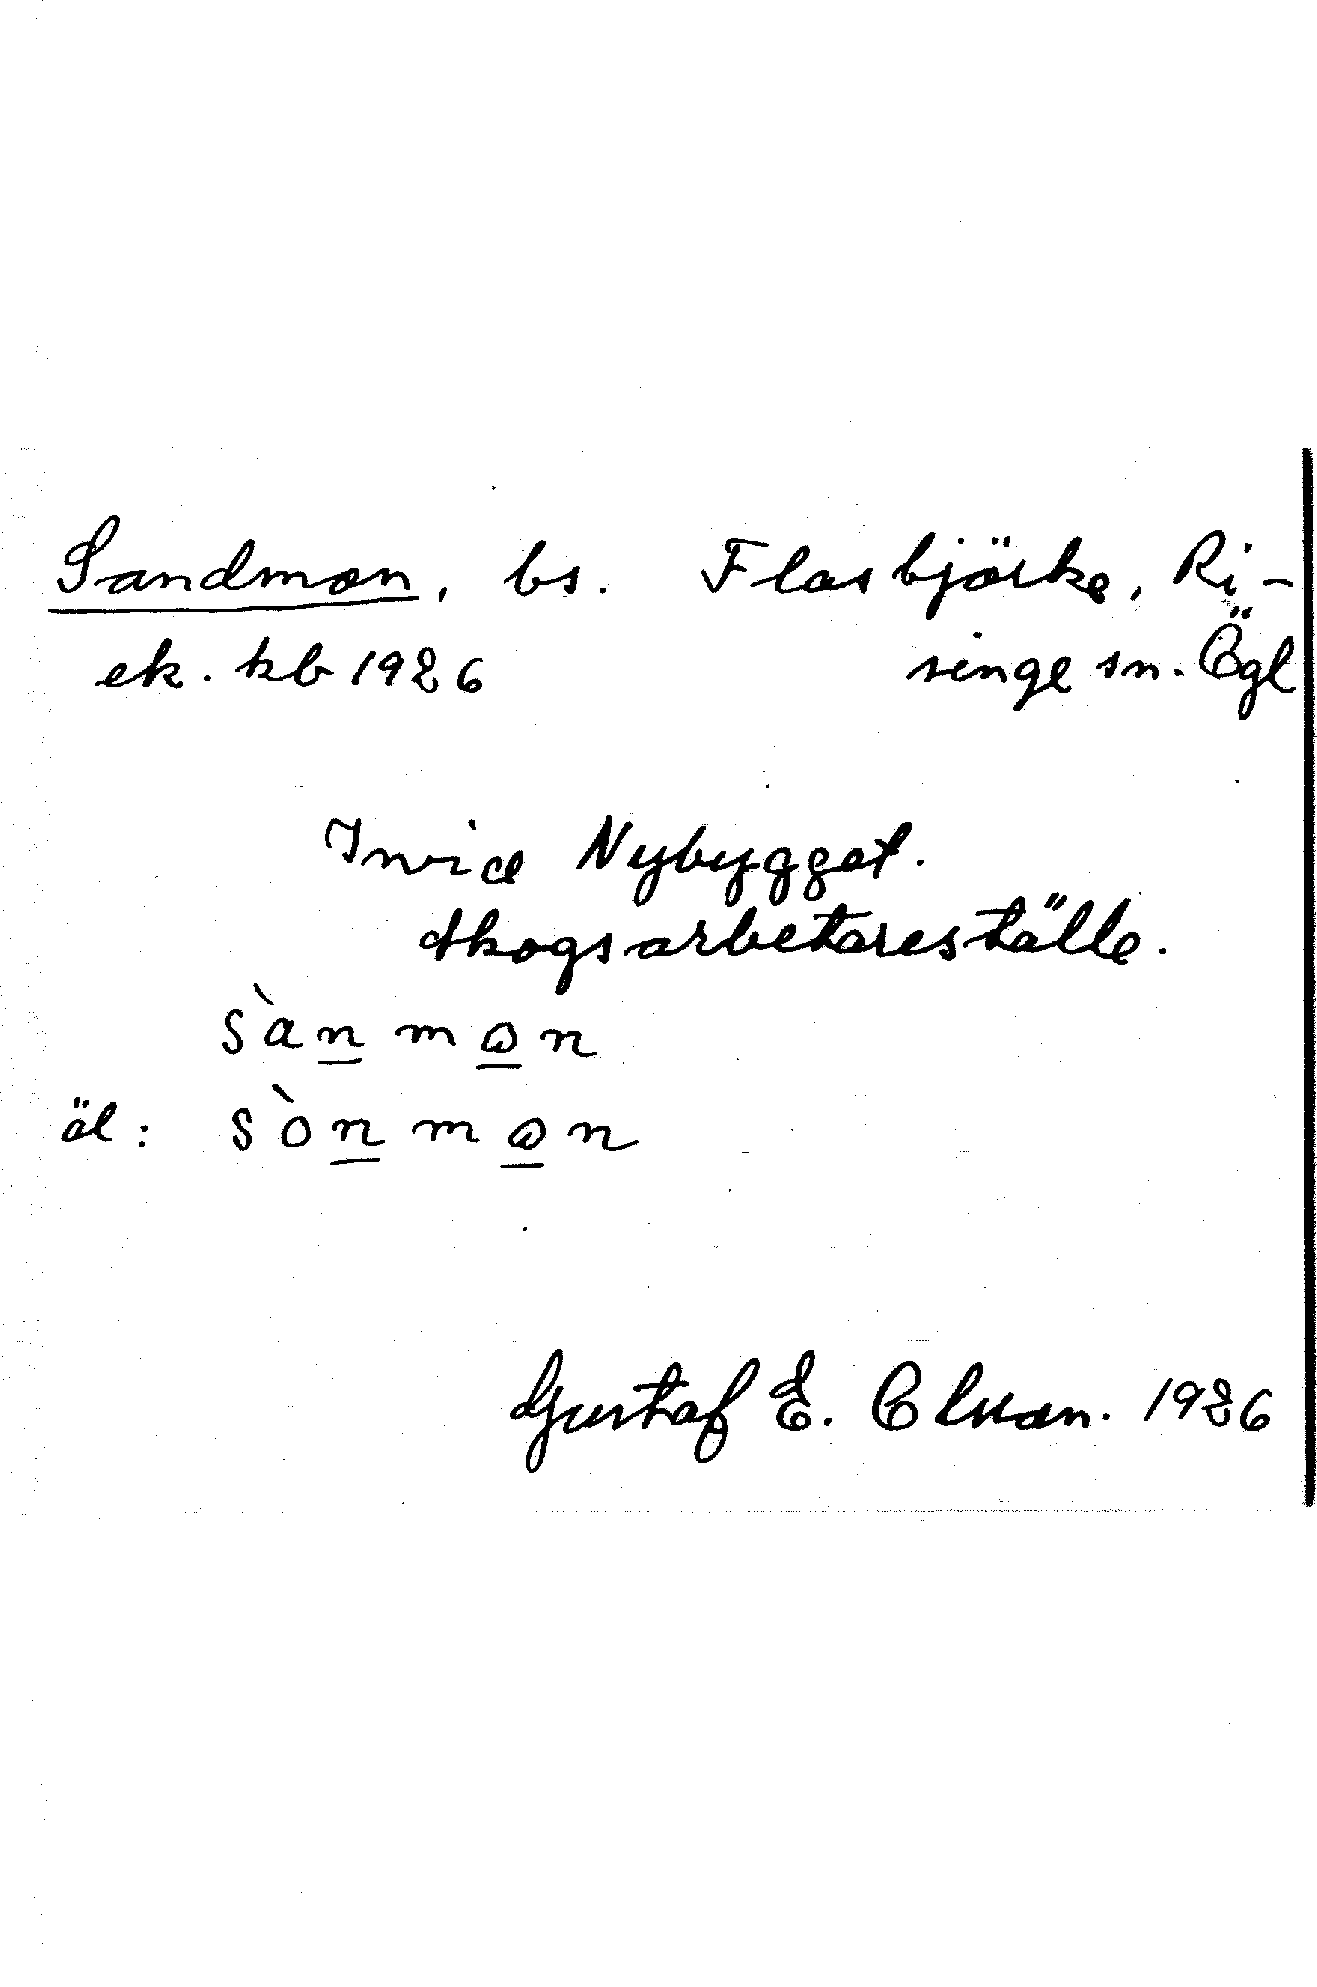 Sandmon, bs. Flasbjörke, Ri-
ek. kb 1926 singe sn. Ögl
Invid Nybygget.
skogsarbetareställe.
sànmωn
äl: sònmωn
Gustaf E. Olsson. 1926